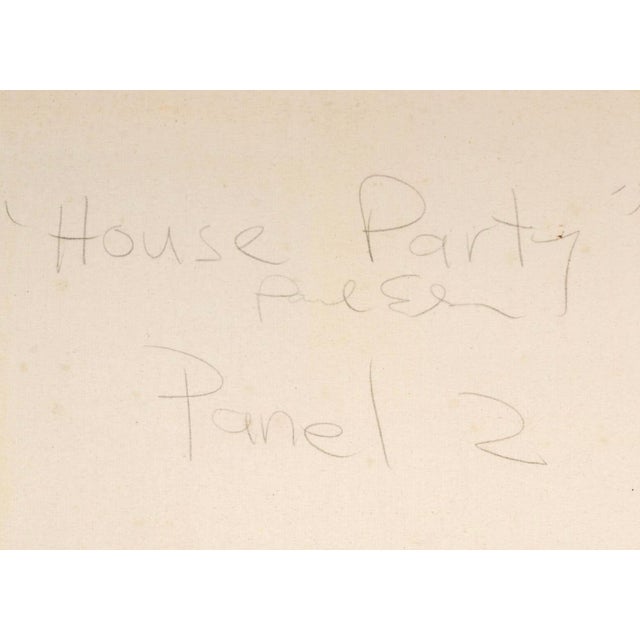 "House Party"
Paul
Panel 2